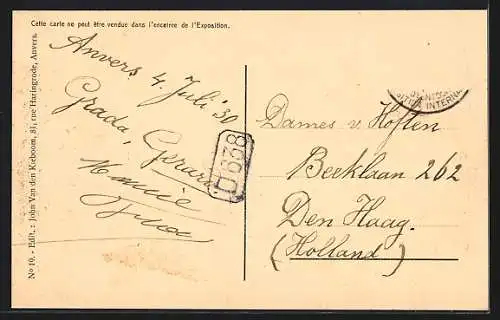 Cette carte ne peut être vendue dans l'enceinte de l'Exposition.
No 10. - Edit. : John Van den Keboom, 81, rue Haringrode, Anvers.
Anvers 4 Juli '30
Grada, Gerard
D 638
Dames v. Hoften
Beeklaan 262
Den Haag.
(Holland)